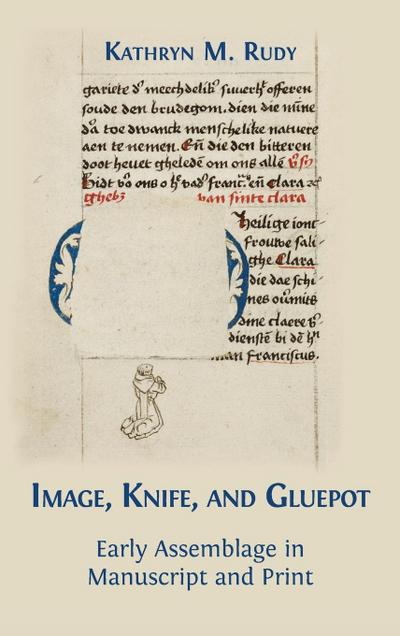 KATHRYN M. RUDY
gariete d' meechdelik' suuerh' offeren
soude den brudegom. dien die mīne
da toe dwanck menschelike natuere
aen te nemen. Eñ die den bitteren
doot heuet gheledē om ons alle
Bidt vō ons o h' vad' franc'. eñ Clara
ghebȝ van sinte clara
Heilige ionc
frouwe sali
ghe Clara
die dae schi
nes oūmits
dine claere
dienstē bi dē
man franciscus.
IMAGE, KNIFE, AND GLUEPOT
Early Assemblage in
Manuscript and Print